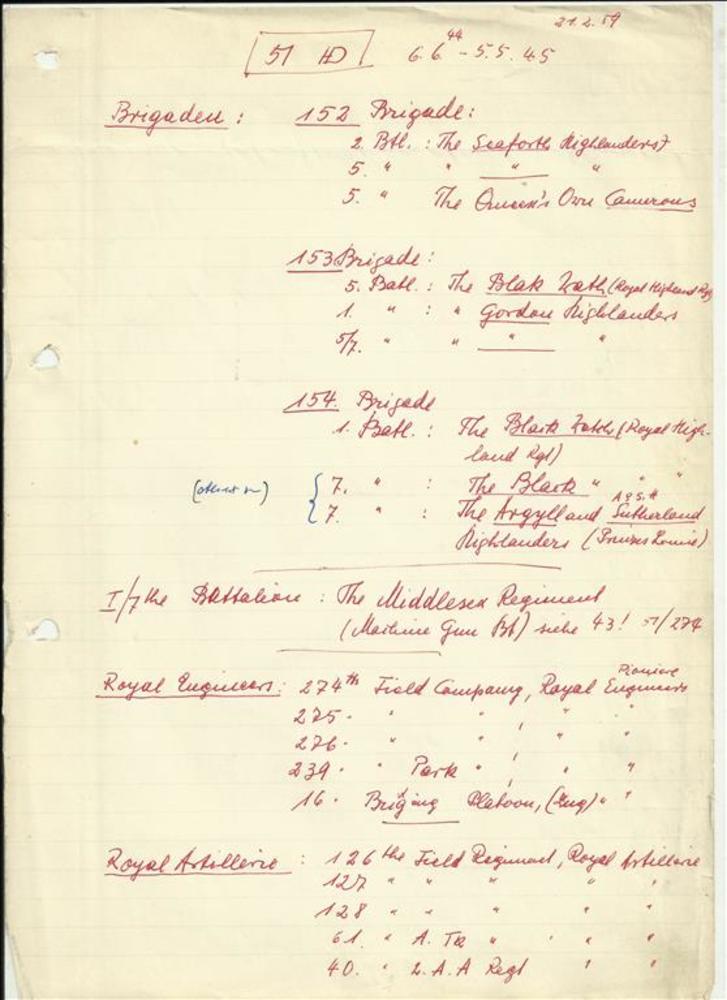 21.2.59
51 HD 6.6.44 - 5.5.45
Brigaden : 152 Brigade:
2. Btl. : The Seaforth Highlanders
5. " " " "
5. " The Queen's Own Camerons
153 Brigade:
5. Batl. : The Blak Wath (Royal Highland Rgt)
1. " : " Gordon Highlanders
5/7. " " " "
154. Brigade
1. Batl. : The Black Watch (Royal High-
land Rgt)
7. " : The Black " " "
A & S.H
7. " : The Argyll and Sutherland
Highlanders (Princes Louise)
I/7 the Battalion : The Middlesex Regiment
(Machine Gun Bt) siehe 43! 51/274
Pioniere
Royal Engineers : 274th Field Company, Royal Engineers
275. " " , " "
276. " " , " "
239. " Park " , " "
16. Briging Platoon, (Eng) " "
Royal Artillerie : 126 the Field Regiment, Royal Artillerie
127 " " " " "
128 " " " " "
61. " A. Tk " " "
40. " L.A.A Regt " "